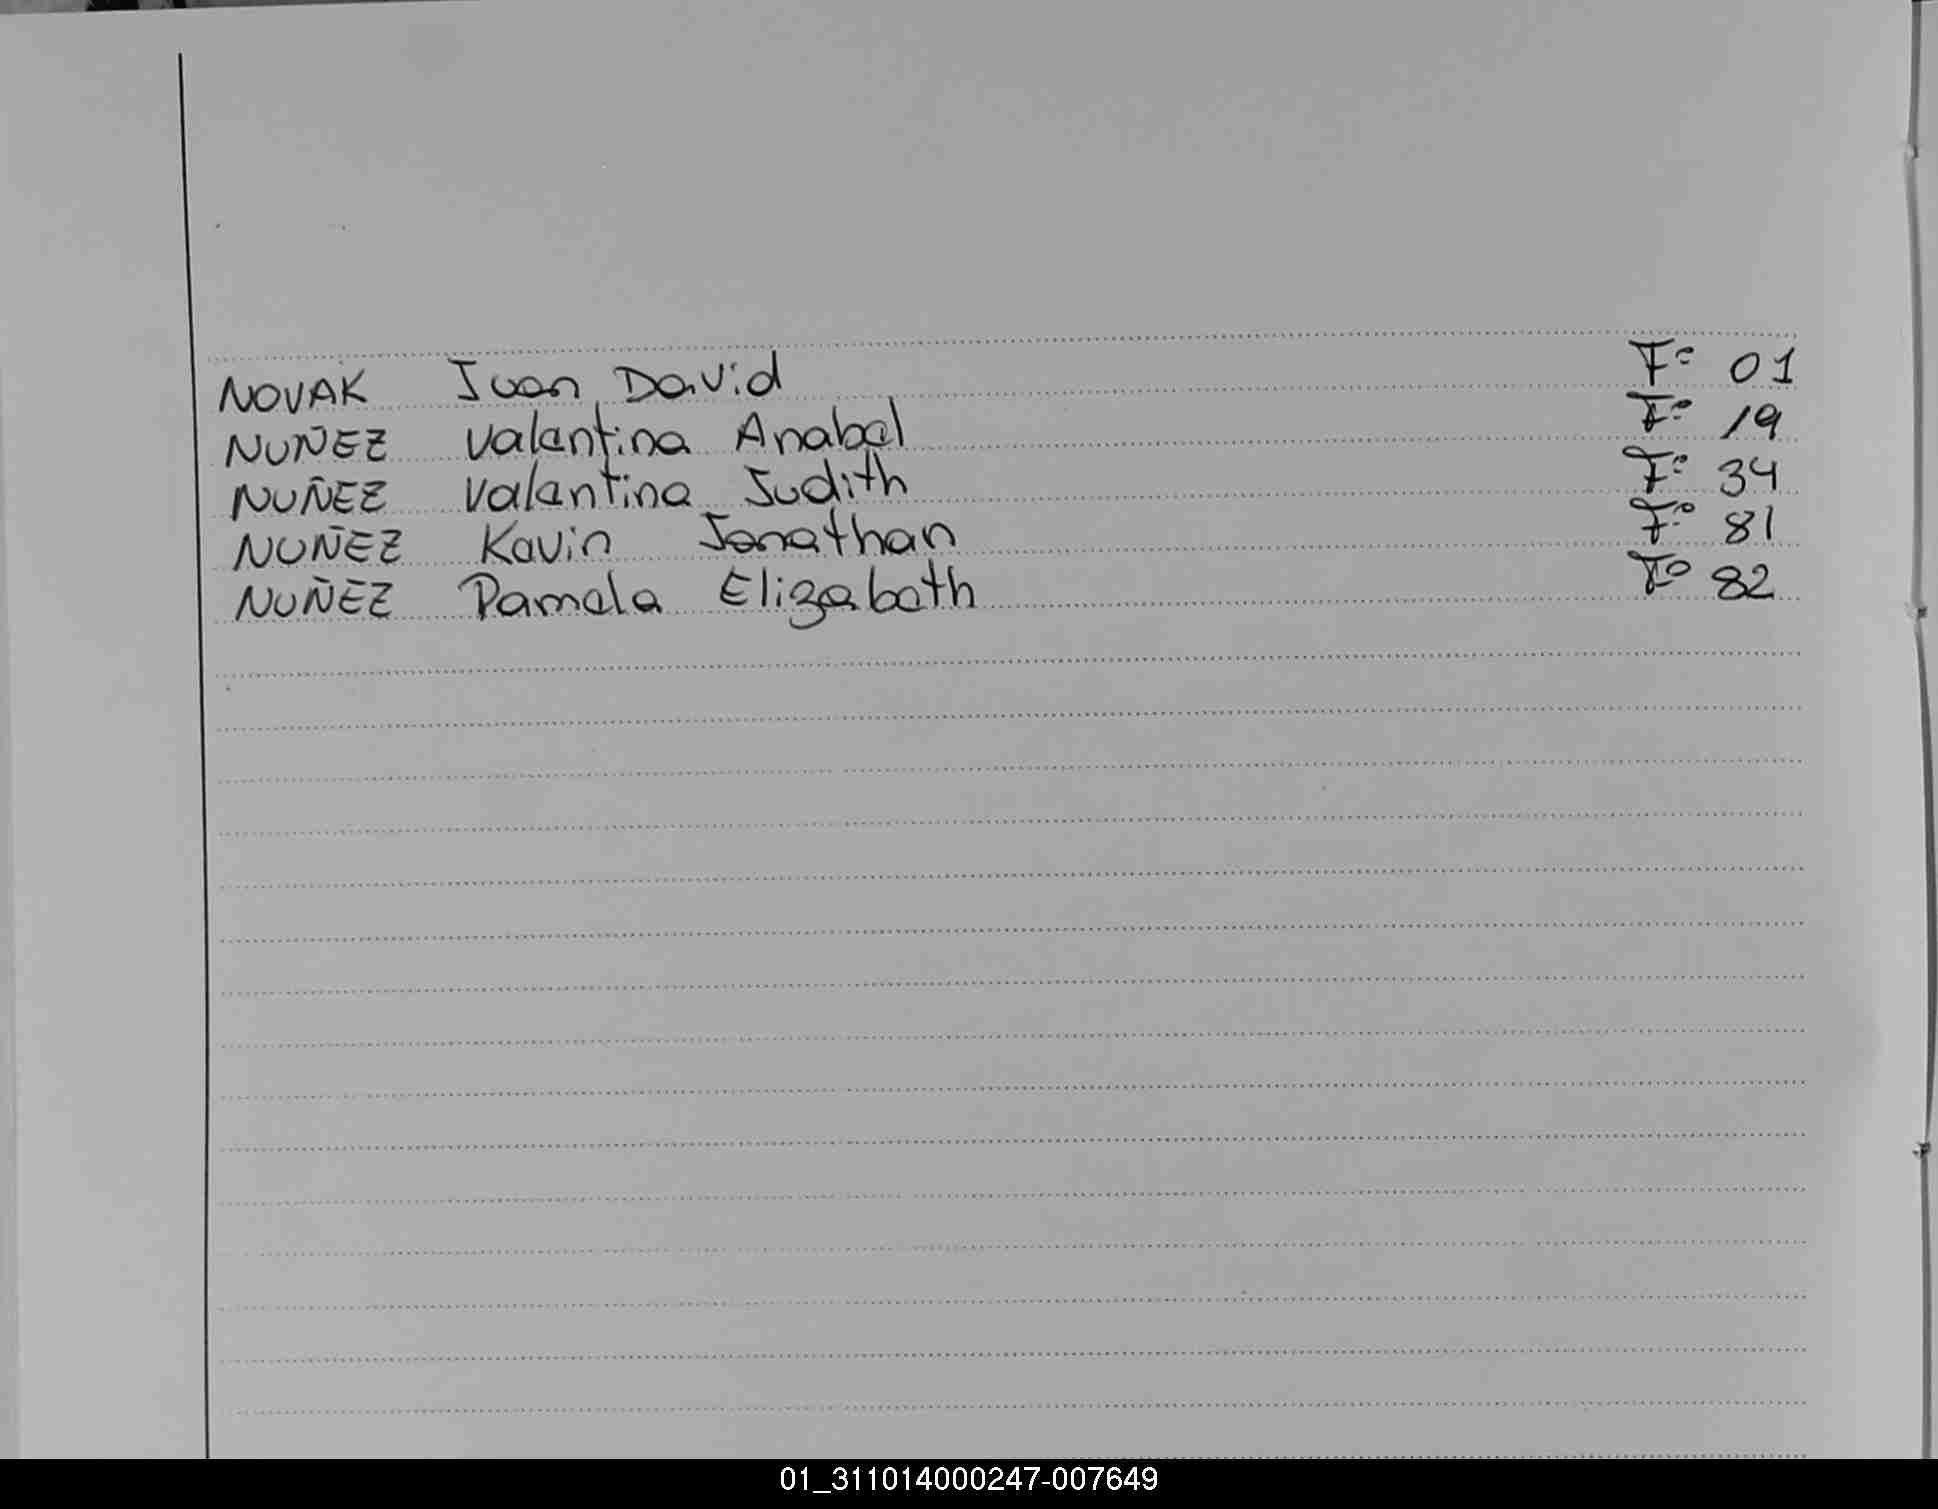 NOVAK Juan David F° 01
NUÑEZ Valentina Anabel F° 19
NUÑEZ Valentina Judith F° 34
NUÑEZ Kevin Jonathan F° 81
NUÑEZ Pamela Elizabeth F° 82
01_311014000247-007649